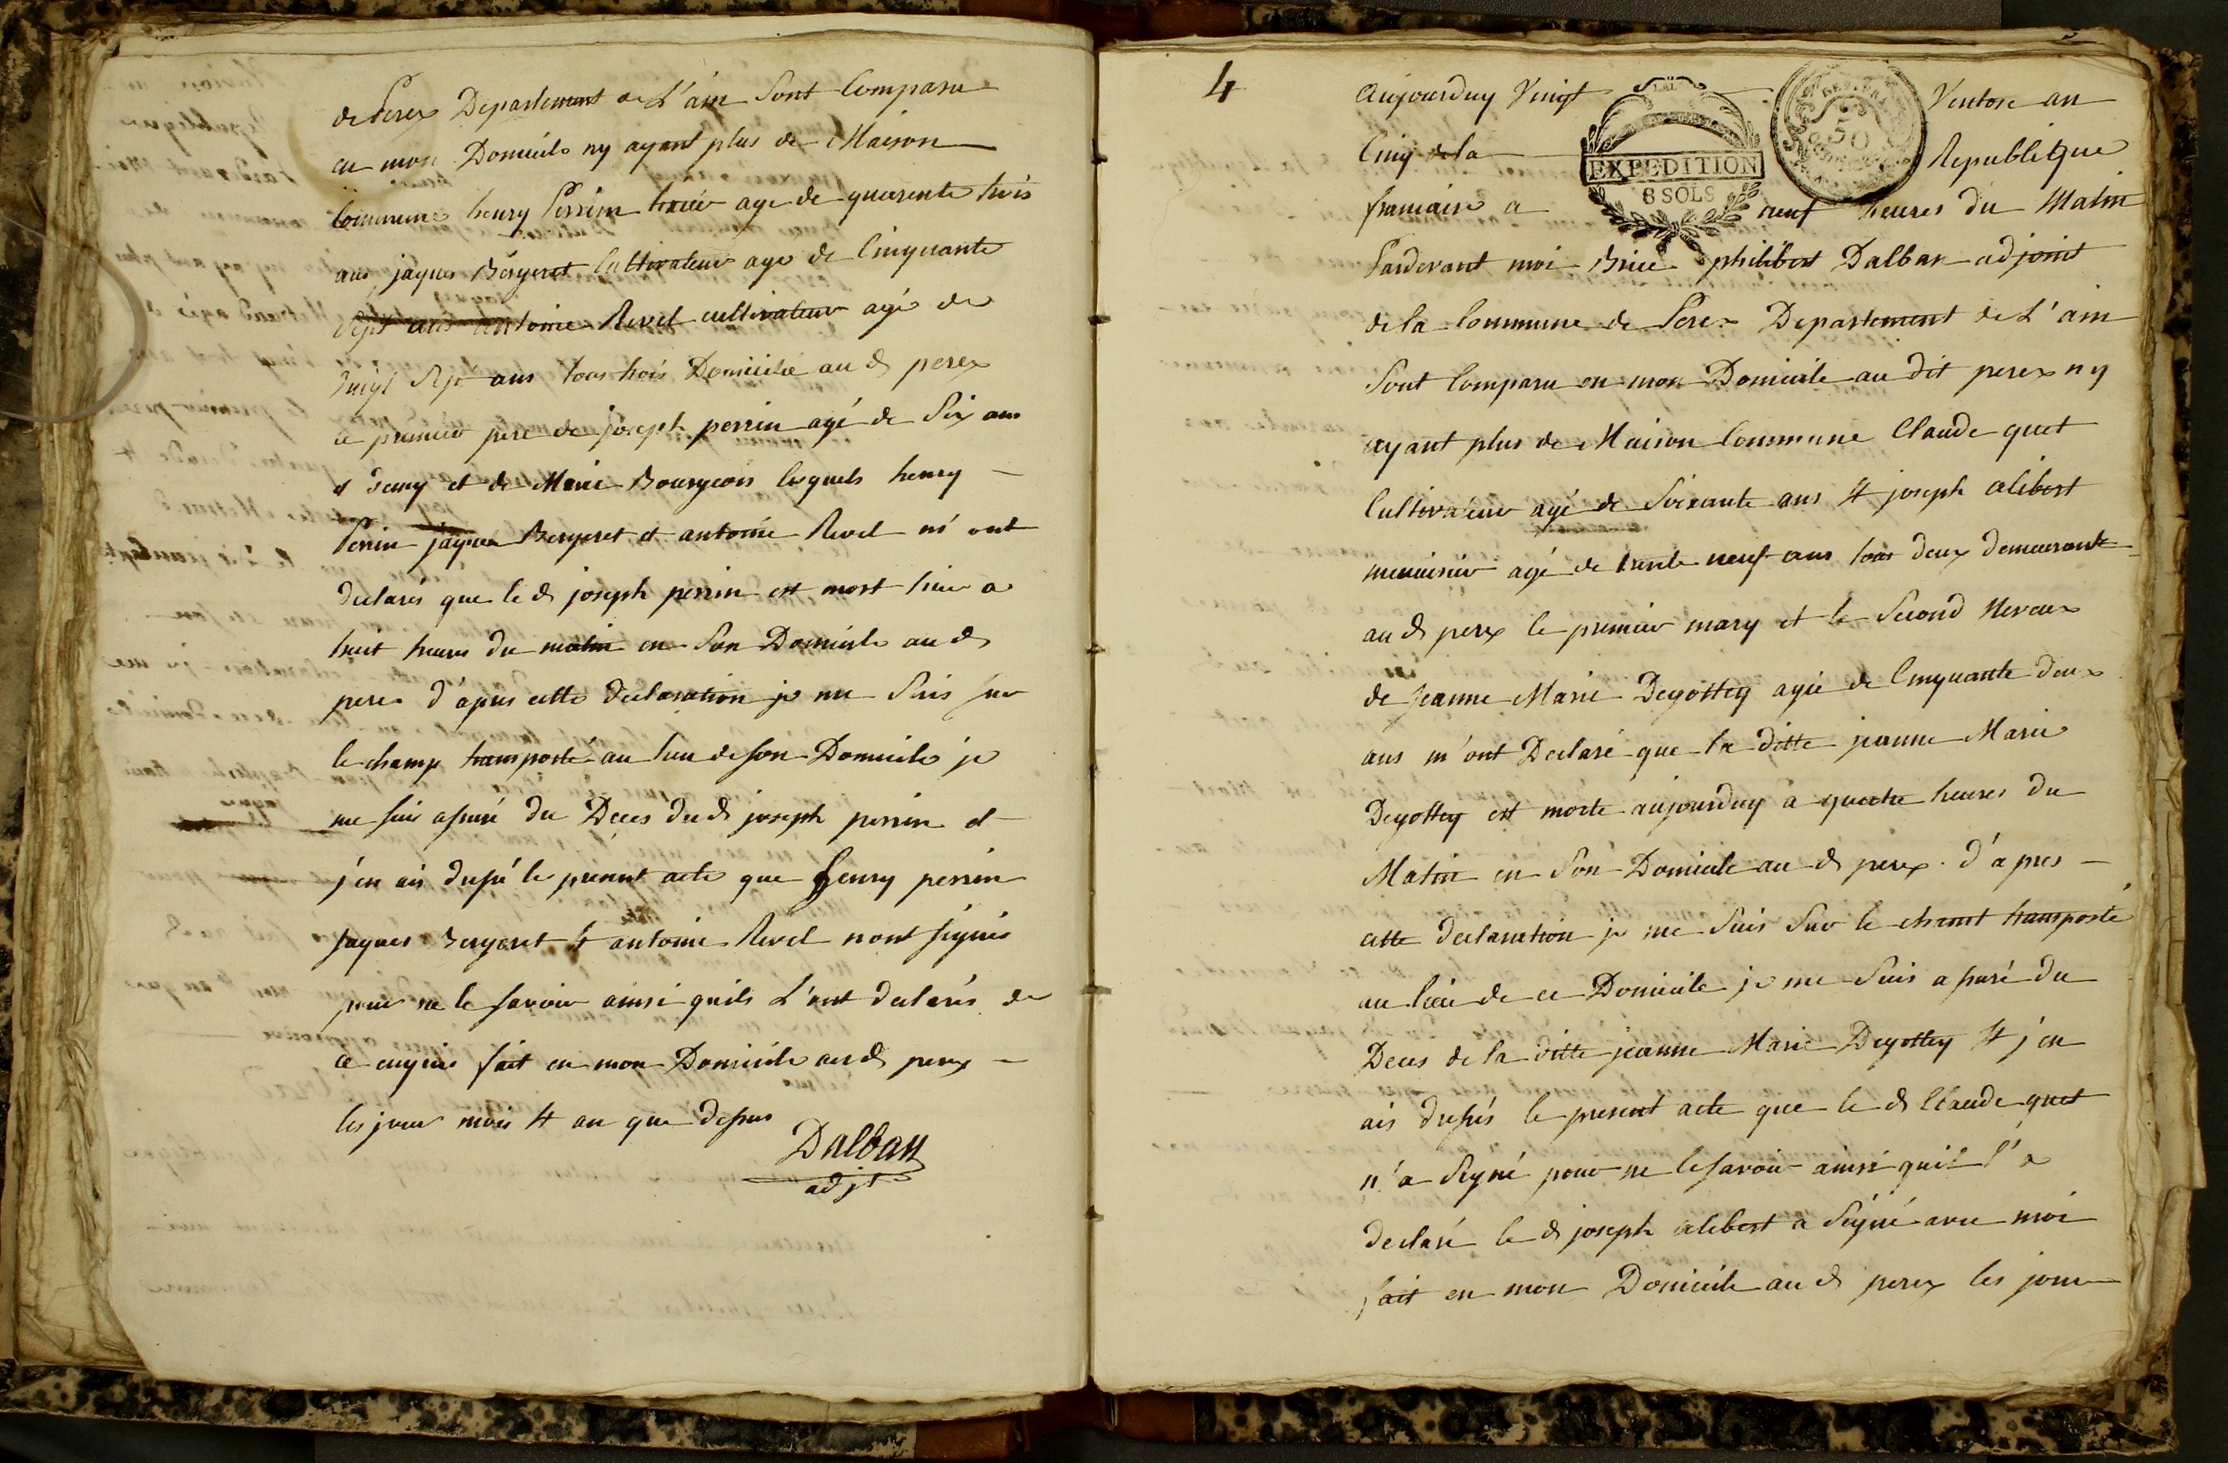 de Perex Departement de L'ain Sont Comparu
en mon Domicile ny ayant plus de Maison
Commune henry Perrin age de quarente trois
ans jaques Bergeret Cultivateur age de Cinquante
Sept ans antoine Revel cultivateur agé de
Vingt Sept ans tous trois Domicilié au d perex
le premier pere de joseph perrin agé de Six ans
et de Marie Bourgeois lesquels henry
Perrin jaques Bergeret et antoine Revel m'ont
declarés que le d joseph perrin est mort hier a
huit heures du matin en Son Domicile au d
perex d'apres cette declaration je me Suis sur
le champ transporté au lieu de son Domicile je
me suis assuré du Deces du d joseph perrin et
j'en ais dressé le present acte que henry perrin
jaques Bergeret et antoine Revel nont signés
pour ne le savoir ainsi quils L'ont declarés de
ce enquis fait en mon Domicile au d perex
les jour mois et an que dessus
Dalban
adjt
4
Aujourduy Vingt Ventose an
Cinq de la Republique
francaise a neuf heures du Matin
Pardevant moi Brice philibert Dalban adjoint
de la Commune de Perex Departement de L'ain
Sont Comparu en mon Domicile au dit perex ny
ayant plus de Maison Commune Claude quet
Cultivateur agé de Soixante ans et joseph alibert
menuisier agé de trente neuf ans tous deux demeurant
au d perex le premier mary et le Second Neveux
de jeanne Marie Degottey agée de Cinquante deux
ans m'ont Declaré que la ditte jeanne Marie
Degottey est morte aujourduy a quatre heures du
Matin en Son Domicile au d perex d'apres
cette declaration je me Suis Sur le chemt transporté
au lieu de ce Domicile je me Suis assuré du
Deces de la ditte jeanne Marie Degottey et j'en
ais dressés le present acte que le d Claude quet
n'a Signé pour ne le savoir ainsi quil l'a
declaré le d joseph alibert a Signé avec moi
fait en mon Domicile au d perex les jour
EXPEDITION
8 SOLS
50